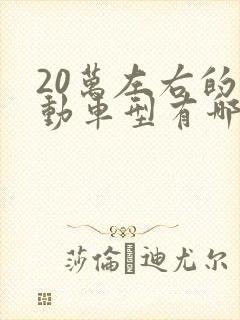 20萬左右的
動車型有哪
莎倫·迪尤尔